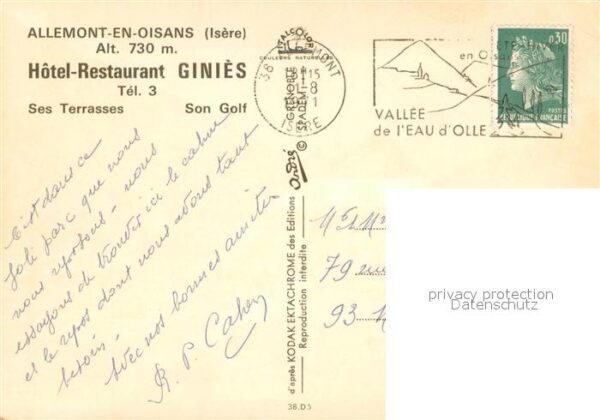 ALLEMONT-EN-OISANS (Isère)
Alt. 730 m.
Hôtel-Restaurant GINIÈS
Tél. 3
Ses Terrasses Son Golf
C'est dans ce
joli parc que nous
nous reposons - nous
essayons de trouver ici le calme
et le repos dont nous avons tant
besoin.
Avec nos bonnes amitiés
R. P. Cahen
COULEURS NATURELLES
GRENOBLE
SPADEM
©
d'après KODAK EKTACHROME des Editions
Reproduction interdite
38.D5
38
15
-8
ISÈRE
en Oisans
VALLÉE
de l'EAU d'OLLE
0,30
POSTES
REPUBLIQUE FRANÇAISE
79
93
privacy protection
Datenschutz